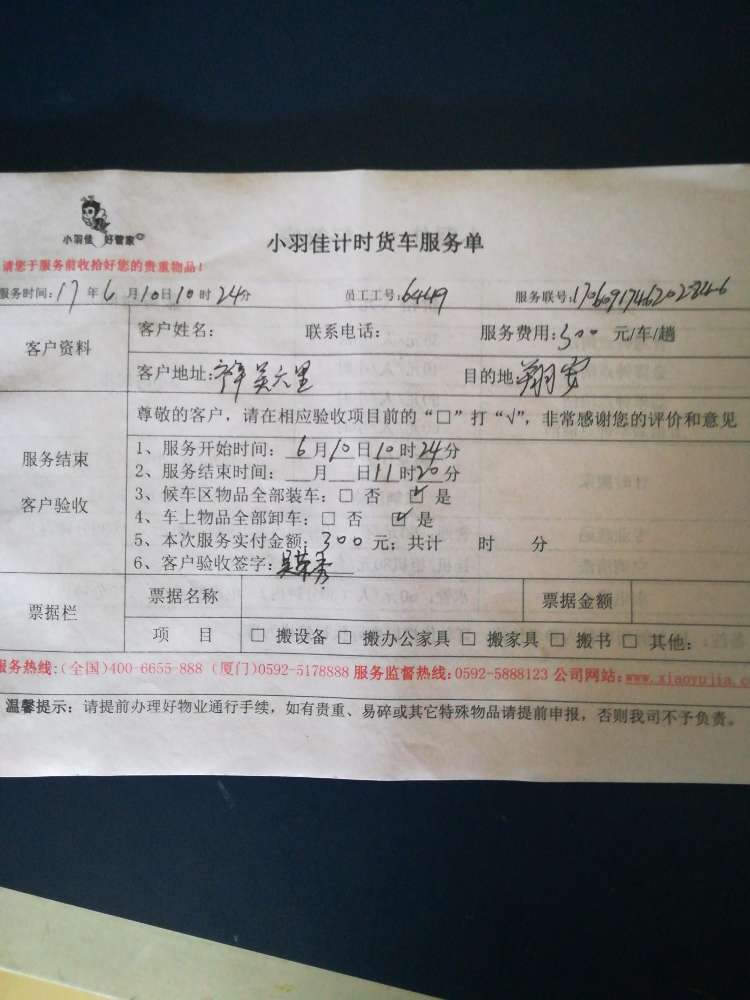 小羽佳 好管家
小羽佳计时货车服务单
请您于服务前收拾好您的贵重物品!
服务时间:17年6月10日10时24分 员工工号:6449 服务联号:
客户资料
客户姓名: 联系电话: 服务费用:300元/车/趟
客户地址: 目的地:翔安
尊敬的客户,请在相应验收项目前的“□”打“√”,非常感谢您的评价和意见
服务结束
客户验收
1、服务开始时间:6月10日10时24分
2、服务结束时间:__月__日11时20分
3、候车区物品全部装车:□ 否 ☑ 是
4、车上物品全部卸车:□ 否 ☑ 是
5、本次服务实付金额:300元;共计 时 分
6、客户验收签字:
票据栏
票据名称 票据金额
项 目 □ 搬设备 □ 搬办公家具 □ 搬家具 □ 搬书 □ 其他:
服务热线:(全国)400-6655-888 (厦门)0592-5178888 服务监督热线:0592-5888123 公司网站:www.xiaoyujia.c
温馨提示:请提前办理好物业通行手续,如有贵重、易碎或其它特殊物品请提前申报,否则我司不予负责。